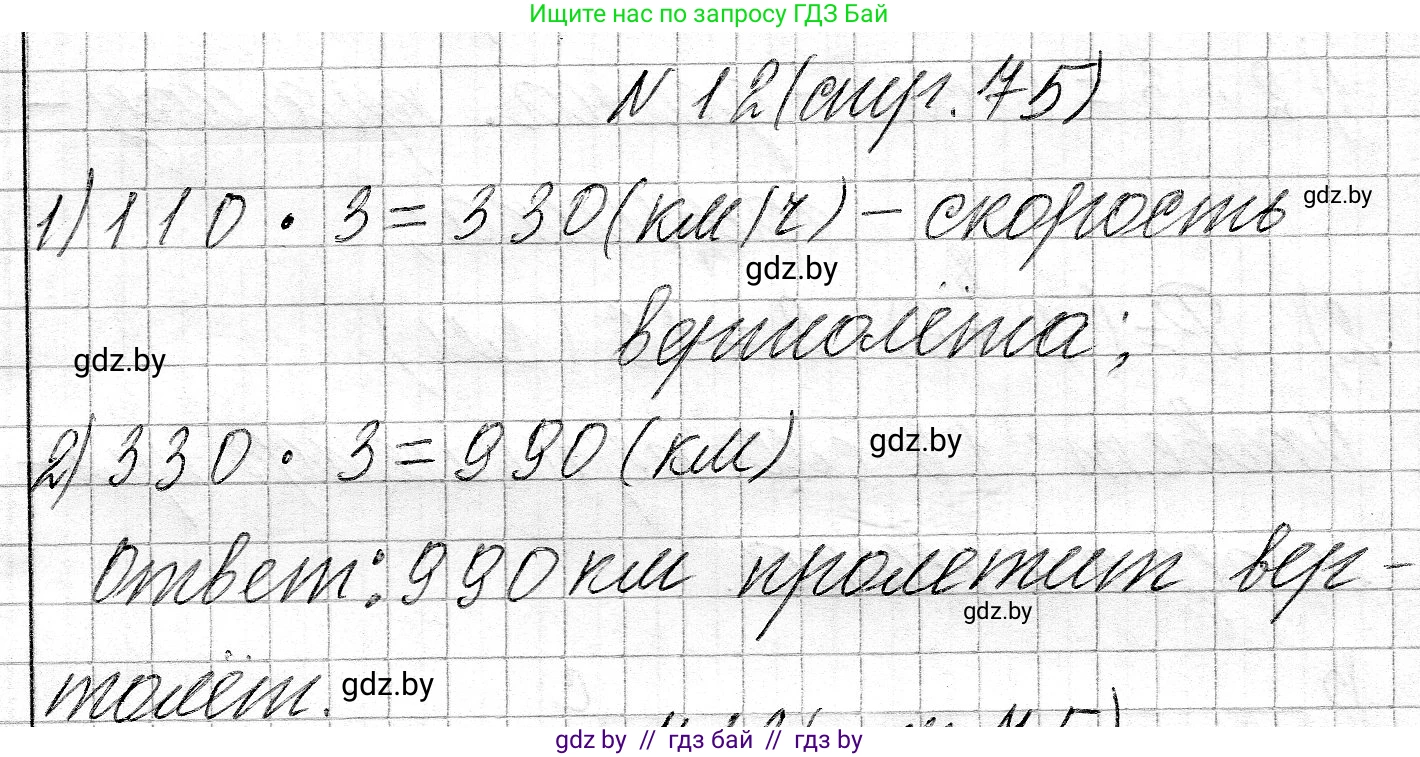 Ищите нас по запросу ГДЗ Бай
N 12 (стр. 75)
1) 110 · 3 = 330 (км/ч) – скорость gdz.by
gdz.by
вертолёта;
gdz.by
2) 330 · 3 = 990 (км) gdz.by
Ответ: 990 км пролетит вер-
gdz.by
толёт. gdz.by
gdz by // гдз бай // гдз by